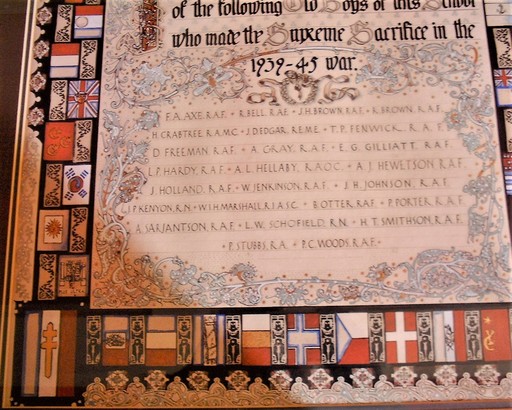 of the following Old Boys of this School
who made the Supreme Sacrifice in the
1939-45 war.
F.A. AXE. R.A.F. • R. BELL. R.A.F. • J.H. BROWN. R.A.F. • K. BROWN. R.A.F.
H. CRABTREE. R.A.M.C. • J. DEDGAR. R.E.M.E. • T.P. FENWICK. R.A.F.
D. FREEMAN. R.A.F. • A. GRAY. R.A.F. • E.G. GILLIATT. R.A.F.
L.P. HARDY. R.A.F. • A.L. HELLABY. R.A.O.C. • A.J. HEWETSON. R.A.F.
J. HOLLAND. R.A.F. • W. JENKINSON. R.A.F. • J.H. JOHNSON. R.A.F.
P. KENYON. R.N. • W.H. MARSHALL. R.I.A.S.C. • B. OTTER. R.A.F. • P. PORTER. R.A.F.
A. SARJANTSON. R.A.F. • L.W. SCHOFIELD. R.N. • H.T. SMITHSON. R.A.F.
• P. STUBBS. R.A. • P.C. WOODS. R.A.F.